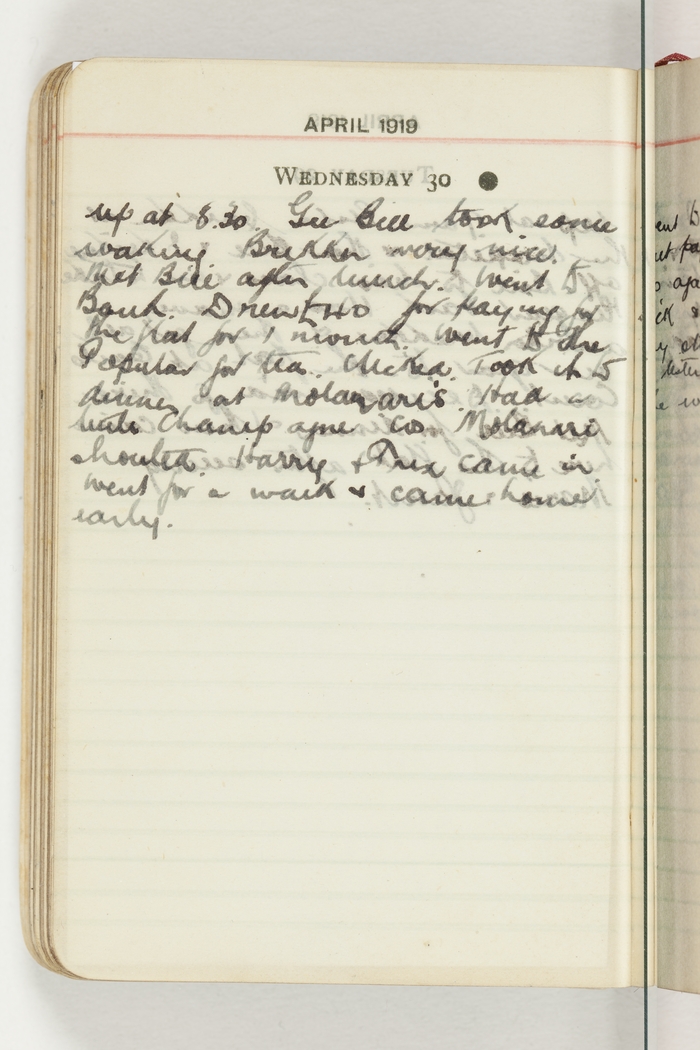 APRIL 1919
WEDNESDAY 30
up at 8.30 Gee Bill took some
waking Brekker very nice.
Met Bill after lunch. Went to
Bank. Drew £40 for paying for
the flat for 1 month. Went to the
Popular for tea. Clicked. Took it to
dinner at Molanari's. Had a
little Champagne Co. Molanari
shouted. Harry & Trix came in
went for a walk & came home
early.